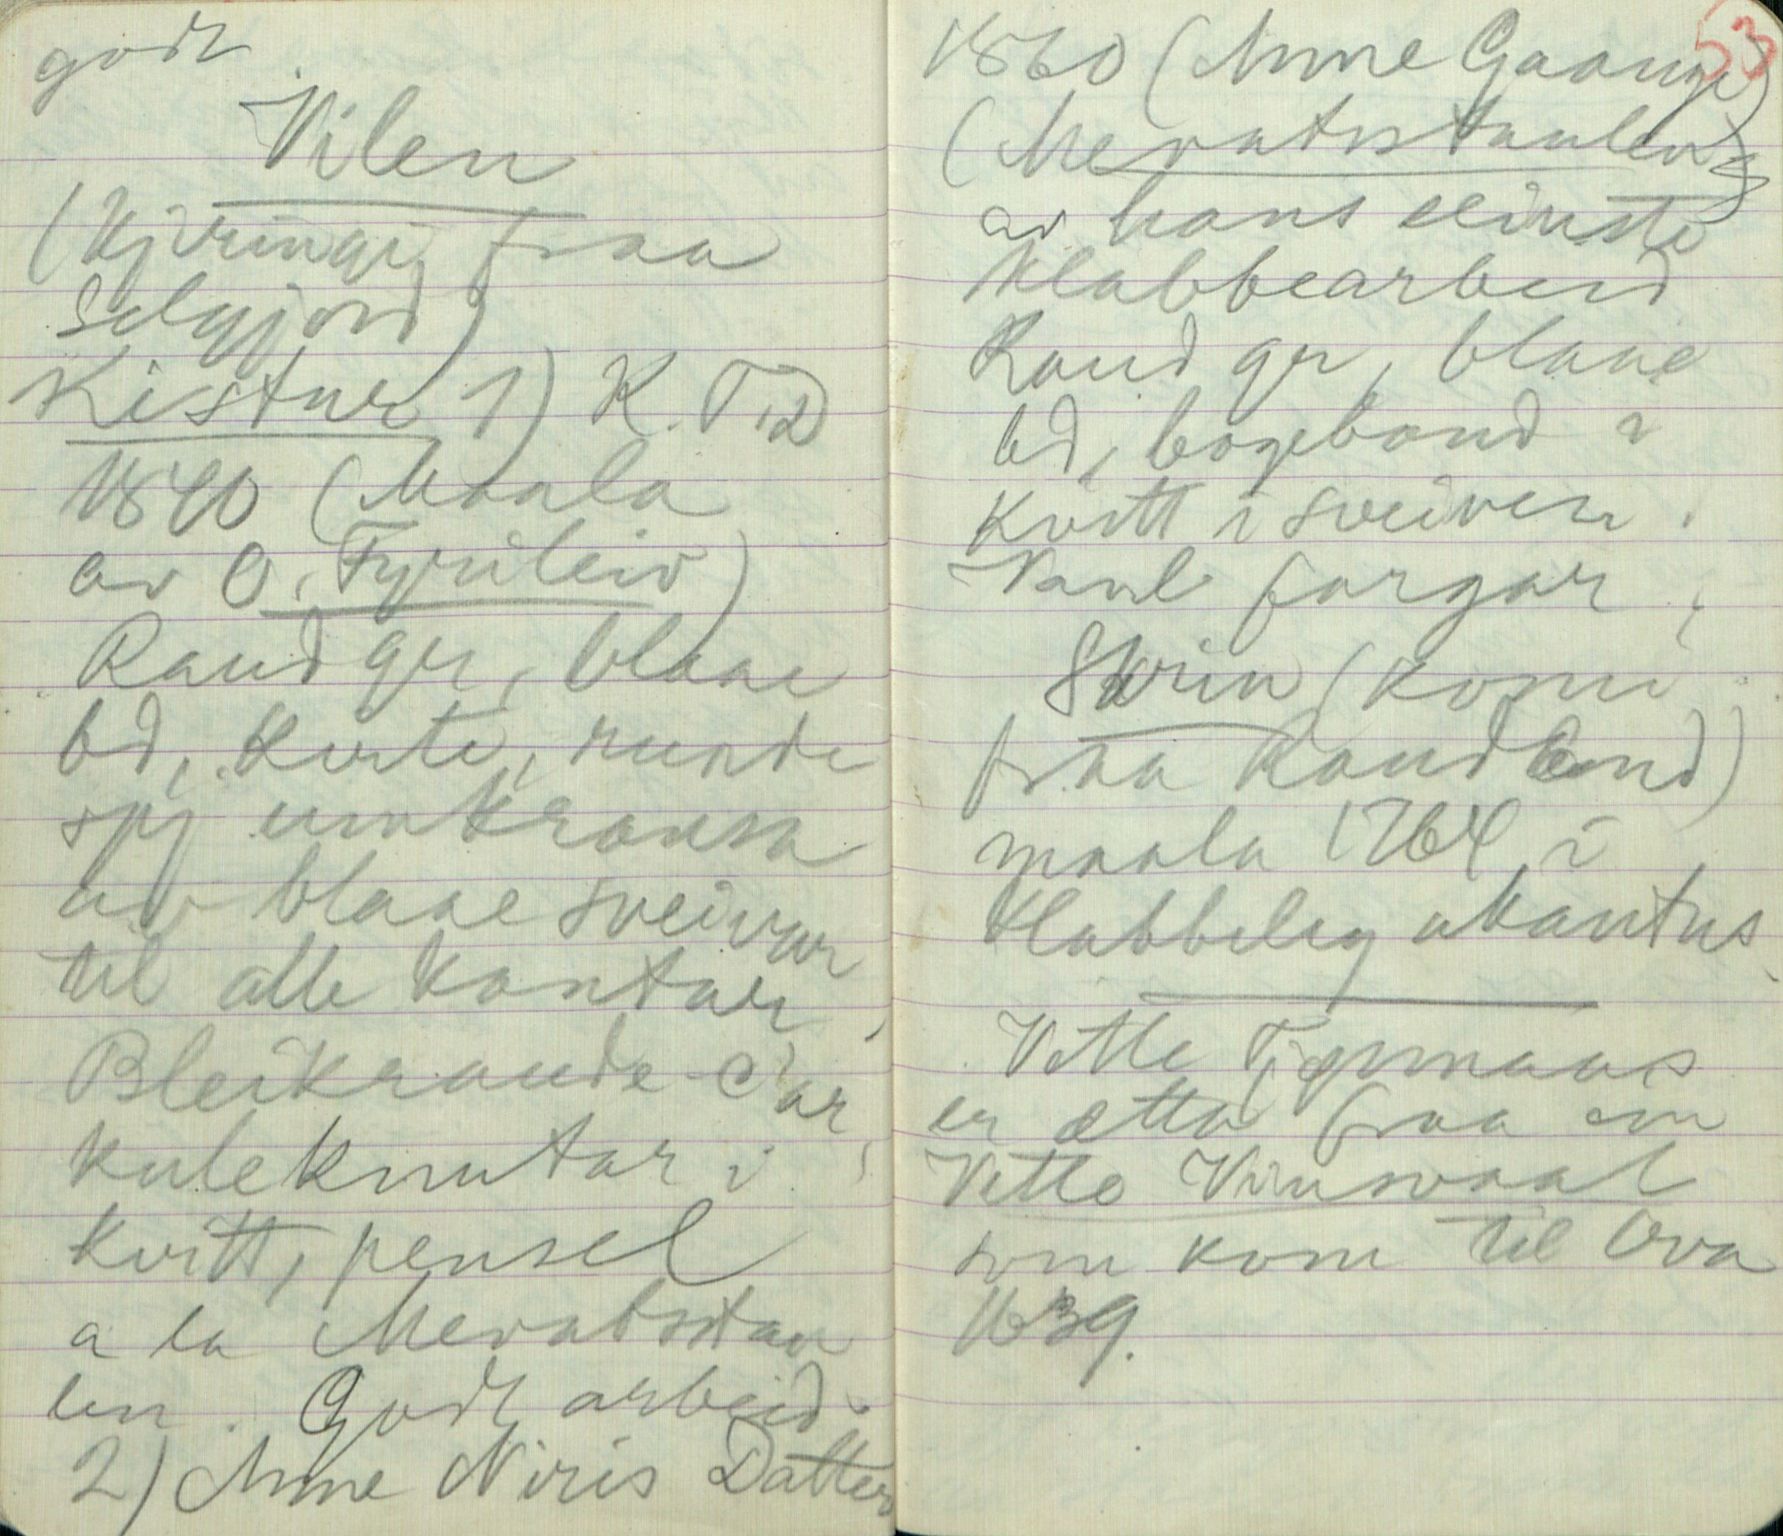 godt
Vilen
(Kjeringi fraa
Selgjord)
Kistur 1) K. T. D
1840 (Maala
av O. Fyrileiv)
Raud gr, blaae
bd, korte, runde
spj umkransa
av blaae sveivar
til alle kantar,
Bleikraude C'ar,
kuleknutar i
kvitt, pensel
a la Mevatsstau
len. Godt arbeid.
2) Anne Niris Datter
53
1860 (Anne Gaaungi)
(Mevatsstaulen)
av hans seinste
Klabbearbeid
Raud gr, blaae
bd, bogebond i
kvitt i sveiven.
Vanl fargar.
Skrin (komi
fraa Raudland)
maala 1764 i
klabbeleg akantus
Vetle
er ætta fraa ein
Vetle Vinsvaal
som kom til Øva
1639.